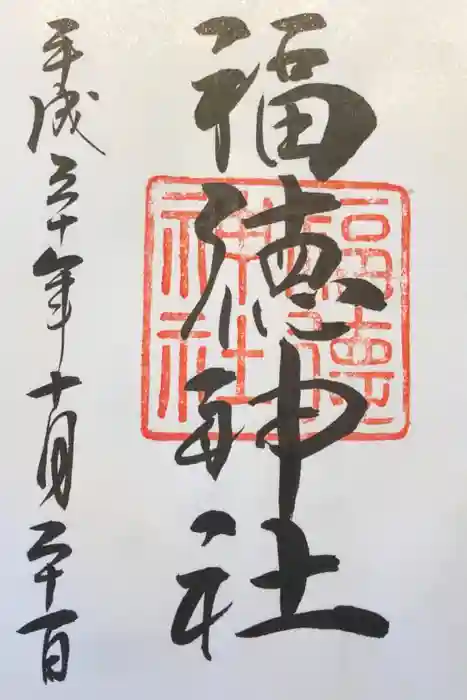 福徳神社
福徳
神社
平成三十年十月二十一日